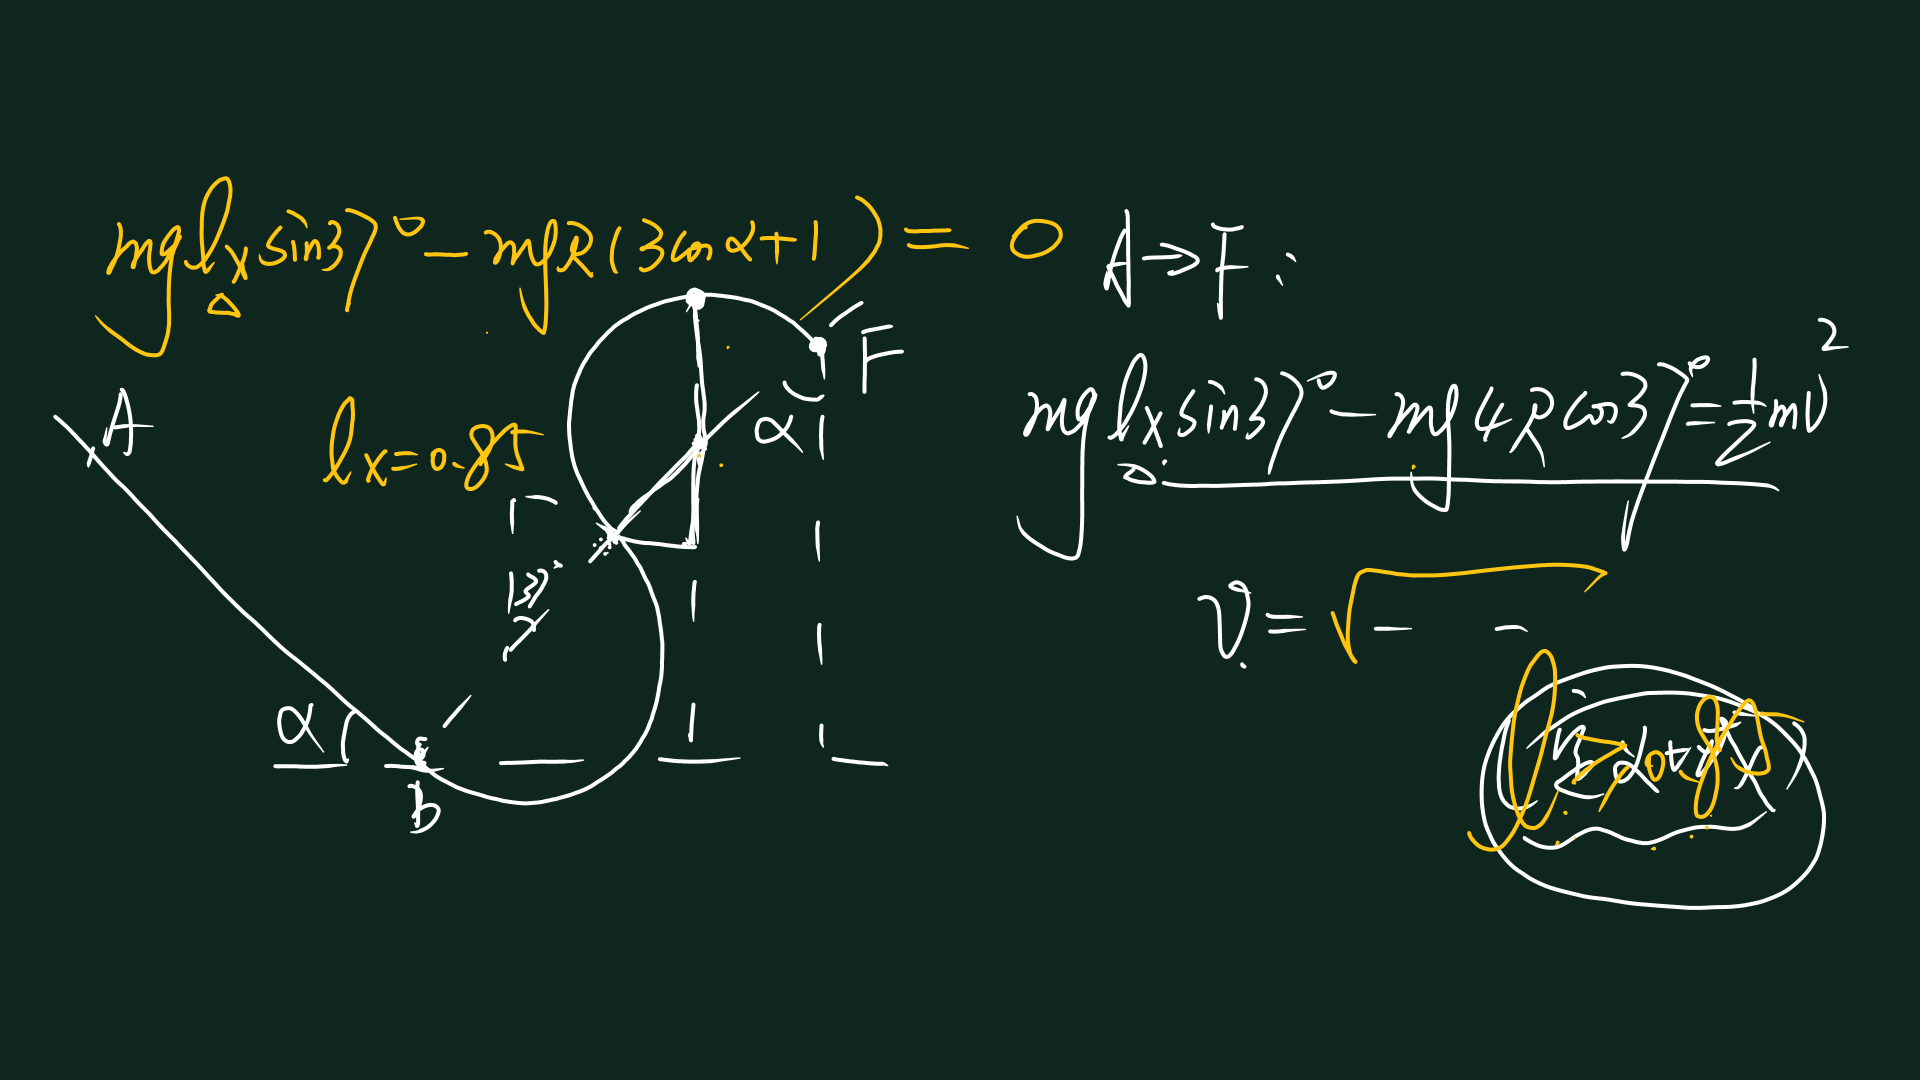 mglₓsin37° - mgR(3cosα+1) = 0
A→F:
mglₓsin37° - mg4Rcos37° = ½mv²
F
A
α
lₓ=0.85
37°
v = √
α
l ≥ 0.85
B